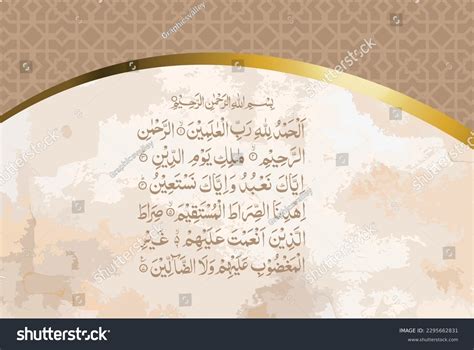 بِسْمِ اللهِ الرَّحْمٰنِ الرَّحِيْمِ
اَلْحَمْدُ لِلّٰهِ رَبِّ الْعٰلَمِيْنَ ۞ الرَّحْمٰنِ
الرَّحِيْمِ ۞ مٰلِكِ يَوْمِ الدِّيْنِ ۞
اِيَّاكَ نَعْبُدُ وَاِيَّاكَ نَسْتَعِيْنُ ۞
اِهْدِنَا الصِّرَاطَ الْمُسْتَقِيْمَ ۞ صِرَاطَ
الَّذِيْنَ اَنْعَمْتَ عَلَيْهِمْ ۞ غَيْرِ
الْمَغْضُوْبِ عَلَيْهِمْ وَلَا الضَّآلِّيْنَ ۞
shutterstock
Graphicsvalley
shutterstock
IMAGE ID: 2295662831
www.shutterstock.com